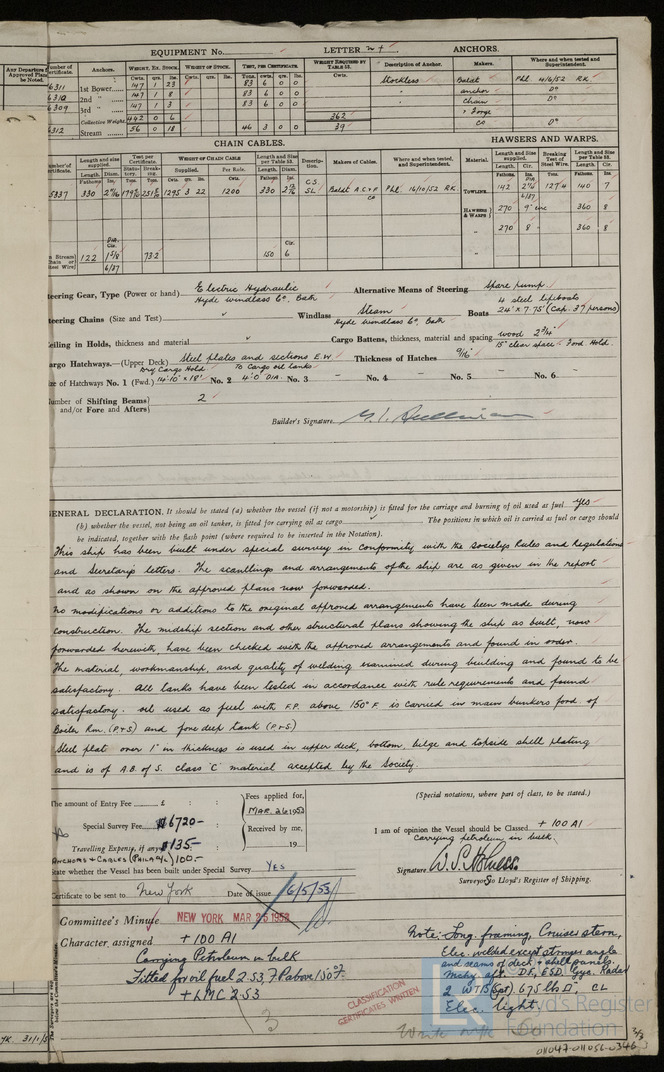 Any Departure
Approved Plans
be Noted.
EQUIPMENT No. LETTER 2 † ANCHORS.
Number of Certificate. Anchors. Weight, Ex. Stock. Weight of Stock. Test, per Certificate. Weight Required by Table 53. Description of Anchor. Makers. Where and when tested and Superintendent.
Cwts. qrs. lbs. Cwts. qrs. lbs. Tons. cwts. qrs. lbs. Cwts.
6311 1st Bower 147 1 23 83 6 0 0 Stockless Baldt Phl 4/6/52 R.K.
6310 2nd " 147 1 8 83 6 0 0 " anchor Do
6309 3rd " 147 1 3 83 6 0 0 " Chain Do
Collective Weight 442 0 6 362 & Forge
6312 Stream 56 0 18 46 3 0 0 39 Co Do
CHAIN CABLES. HAWSERS AND WARPS.
Number of Certificate. Length and size supplied. Test per Certificate. Weight of Chain Cable Length and Size per Table 53. Description. Makers of Cables. Where and when tested, and Superintendent. Material. Length and size supplied. Breaking Test of Steel Wire. Length and Size per Table 53.
5337 330 2 9/16 1295 3 22 1200 330 2 9/16 C.S. SL Baldt A.C.&F Co Phl 16/10/52 R.K. Towline 142 127.4 140 7
Hawsers & Warps 270 9" 360 8
" 270 8 " 360 8
Stream Chain or Steel Wire 122 1 5/8 6/37 73.2 150 6
Steering Gear, Type (Power or hand) Electric Hydraulic Alternative Means of Steering Spare pump
Hyde Windlass Co. Bath
Steering Chains (Size and Test) " Windlass Steam Boats 4 steel lifeboats
Hyde Windlass Co. Bath 24' x 7.75' (Cap. 37 persons)
Ceiling in Holds, thickness and material " Cargo Battens, thickness, material and spacing wood 2 3/4"
15" clear space - Ford Hold.
Cargo Hatchways.—(Upper Deck) Steel plates and sections E.W. Thickness of Hatches 9/16"
Dry Cargo Hold To Cargo oil tanks
Size of Hatchways No. 1 (Fwd.) 14'-10" x 18' No. 2 4'-0" DIA. No. 3 - No. 4 - No. 5 - No. 6 -
Number of Shifting Beams and/or Fore and Afters 2
Builder's Signature
GENERAL DECLARATION. It should be stated (a) whether the vessel (if not a motorship) is fitted for the carriage and burning of oil used as fuel yes
(b) whether the vessel, not being an oil tanker, is fitted for carrying oil as cargo The positions in which oil is carried as fuel or cargo should
be indicated, together with the flash point (where required to be inserted in the Notation).
This ship has been built under special survey in conformity with the Societys Rules and Regulations
and Secretarys letters. The scantlings and arrangements of the ship are as given in the report
and as shown on the approved plans now forwarded.
No modifications or additions to the original approved arrangements have been made during
construction. The midship section and other structural plans showing the ship as built, now
forwarded herewith, have been checked with the approved arrangements and found in order.
The material, workmanship, and quality of welding examined during building and found to be
satisfactory. All tanks have been tested in accordance with rule requirements and found
satisfactory. oil used as fuel with F.P. above 150°F. is carried in main bunkers ford. of
Boiler Rm. (P&S) and fore deep tank (P&S)
Steel plat over 1" in thickness is used in upper deck, bottom, bilge and topside shell plating
and is of A.B. of S. class 'C' material accepted by the Society.
The amount of Entry Fee £ : : Fees applied for, (Special notations, where part of class, to be stated.)
MAR. 26 1953
Special Survey Fee $6720- Received by me, I am of opinion the Vessel should be Classed + 100 A1
Carrying petroleum in bulk.
Travelling Expenses, if any $135- 19
Anchors & Cables (Phila a/c) 100.-
State whether the Vessel has been built under Special Survey YES Signature
Surveyor to Lloyd's Register of Shipping.
Certificate to be sent to New York Date of issue 6/5/53
Committee's Minute NEW YORK MAR 25 1953
Character assigned + 100 A1
Carrying Petroleum in bulk
Fitted for oil fuel 2.53, F.P. above 150°F.
+ LMC 2.53
Note:- Long. framing, Cruiser stern,
Elec. welded except stringer angle
and seams of deck & shell panels.
Mchy. aft. DF, ESD, Gyc. Radar
2 WTB (Spt) 675 lbs CL
Elec. light.
CLASSIFICATION
CERTIFICATES WRITTEN
3
Lloyd's Register
Foundation
011047-011056-0346